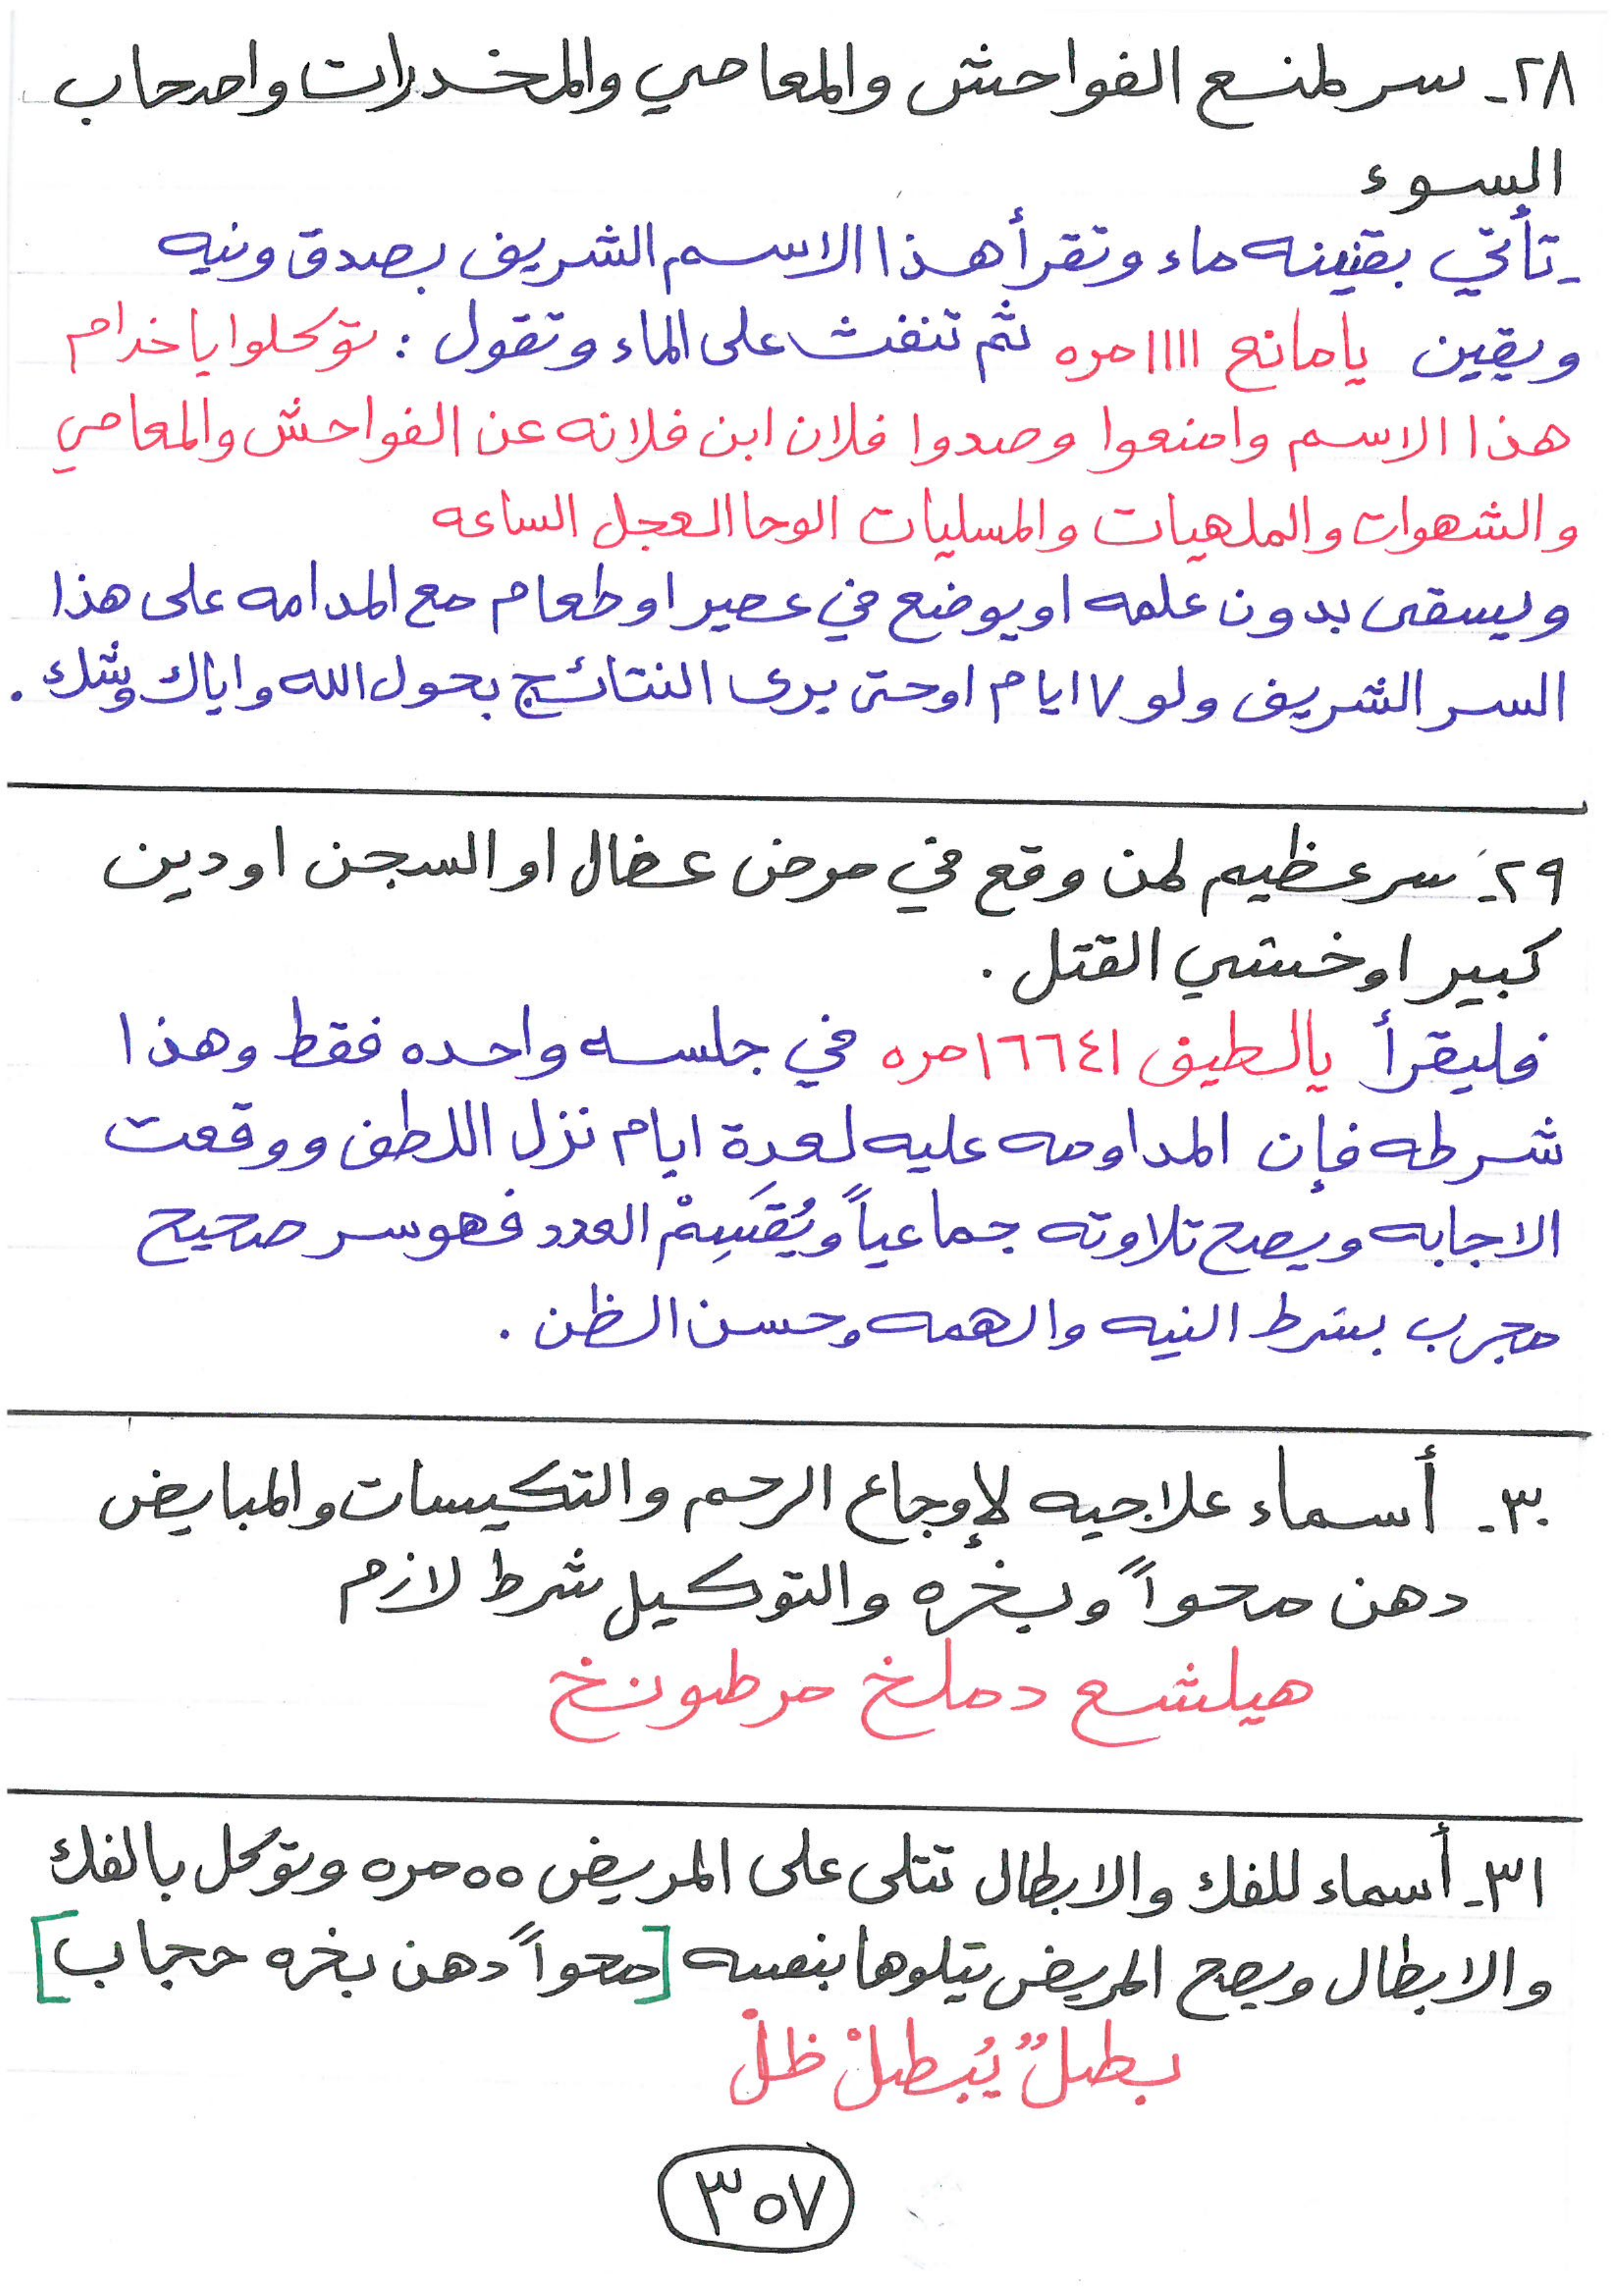 ٢٨- سر لمنع الفواحش والمعاصي والمخدرات واصحاب
السوء
- تأتي بقنينه ماء وتقرأ هذا الاسم الشريف بصدق ونيه
ويقين يا مانع ١١١١ مره ثم تنفث على الماء وتقول : توكلوا يا خدام
هذا الاسم وامنعوا وصدوا فلان ابن فلانه عن الفواحش والمعاصي
والشهوات والملهيات والمسليات الوحا العجل الساعه
ويسقى بدون علمه او يوضع في عصير او طعام مع المدامه على هذا
السر الشريف ولو ٧ ايام او حتى يرى النتائج بحول الله واياك وشك .
٢٩- سر عظيم لمن وقع في مرض عضال او السجن او دين
كبير او خشي القتل .
فليقرأ يالطيف ١٦٦٤١ مره في جلسه واحده فقط وهذا
شرطه فإن المداومه عليه لعدة ايام نزل اللطف ووقعت
الاجابه ويصح تلاوته جماعياً ويُقَسِمْ العدد فهو سر صحيح
مجرب بشرط النيه والهمه وحسن الظن .
٣٠- أسماء علاجيه لإوجاع الرحم والتكيسات والمبايض
دهن محواً وبخره والتوكيل شرط لازم
هيلشع دملخ مرطونخ
٣١- أسماء للفك والابطال تتلى على المريض ٥٥ مره وتوكل بالفك
والابطال ويصح المريض يتلوها بنفسه [محواً دهن بخره حجاب]
بطلٌ يُبطلْ ظلْ
٣٥٧